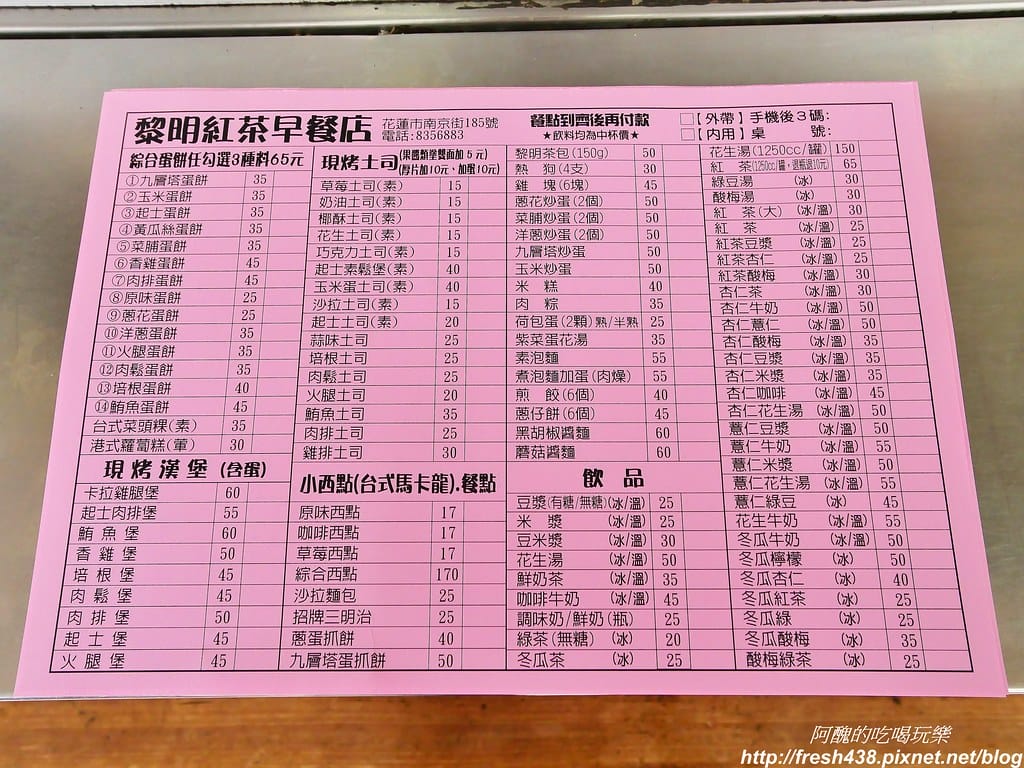 黎明紅茶早餐店
花蓮市南京街185號
電話:8356883
餐點到齊後再付款
★飲料均為中杯價★
□【外帶】手機後3碼:
□【內用】桌 號:
綜合蛋餅任勾選3種料65元
①九層塔蛋餅 35
②玉米蛋餅 35
③起士蛋餅 35
④黃瓜絲蛋餅 35
⑤菜脯蛋餅 35
⑥香雞蛋餅 45
⑦肉排蛋餅 45
⑧原味蛋餅 25
⑨蔥花蛋餅 25
⑩洋蔥蛋餅 35
⑪火腿蛋餅 35
⑫肉鬆蛋餅 35
⑬培根蛋餅 40
⑭鮪魚蛋餅 45
台式菜頭粿(素) 35
港式蘿蔔糕(葷) 30
現烤漢堡(含蛋)
卡拉雞腿堡 60
起士肉排堡 55
鮪魚堡 60
香雞堡 50
培根堡 45
肉鬆堡 45
肉排堡 50
起士堡 45
火腿堡 45
現烤土司(果醬類塗雙面加5元)
(厚片加10元、加蛋10元)
草莓土司(素) 15
奶油土司(素) 15
椰酥土司(素) 15
花生土司(素) 15
巧克力土司(素) 15
起士素鬆堡(素) 40
玉米蛋土司(素) 40
沙拉土司(素) 15
起士土司(素) 20
蒜味土司 25
培根土司 25
肉鬆土司 25
火腿土司 20
鮪魚土司 35
肉排土司 25
雞排土司 30
小西點(台式馬卡龍).餐點
原味西點 17
咖啡西點 17
草莓西點 17
綜合西點 170
沙拉麵包 25
招牌三明治 25
蔥蛋抓餅 40
九層塔蛋抓餅 50
黎明茶包(150g) 50
熱 狗(4支) 30
雞 塊(6塊) 45
蔥花炒蛋(2個) 50
菜脯炒蛋(2個) 50
洋蔥炒蛋(2個) 50
九層塔炒蛋 50
玉米炒蛋 50
米 糕 40
肉 粽 35
荷包蛋(2顆)熟/半熟 25
紫菜蛋花湯 35
素泡麵 55
煮泡麵加蛋(肉燥) 55
煎 餃(6個) 40
蔥仔餅(6個) 45
黑胡椒醬麵 60
蘑菇醬麵 60
飲 品
豆漿(有糖/無糖)(冰/溫) 25
米 漿 (冰/溫) 25
豆米漿 (冰/溫) 30
花生湯 (冰/溫) 50
鮮奶茶 (冰/溫) 35
咖啡牛奶 (冰/溫) 45
調味奶/鮮奶(瓶) 25
綠茶(無糖) (冰) 20
冬瓜茶 (冰) 25
花生湯(1250cc/罐) 150
紅 茶(1250cc/罐,退瓶退10元) 65
綠豆湯 (冰) 30
酸梅湯 (冰) 30
紅 茶(大) (冰/溫) 30
紅 茶 (冰/溫) 25
紅茶豆漿 (冰/溫) 25
紅茶杏仁 (冰/溫) 25
紅茶酸梅 (冰/溫) 30
杏仁茶 (冰/溫) 30
杏仁牛奶 (冰/溫) 50
杏仁薏仁 (冰/溫) 50
杏仁酸梅 (冰/溫) 35
杏仁豆漿 (冰/溫) 35
杏仁米漿 (冰/溫) 35
杏仁咖啡 (冰/溫) 45
杏仁花生湯 (冰/溫) 50
薏仁豆漿 (冰/溫) 50
薏仁牛奶 (冰/溫) 55
薏仁米漿 (冰/溫) 50
薏仁花生湯 (冰/溫) 55
薏仁綠豆 (冰) 45
花生牛奶 (冰/溫) 55
冬瓜牛奶 (冰/溫) 50
冬瓜檸檬 (冰) 50
冬瓜杏仁 (冰) 40
冬瓜紅茶 (冰) 25
冬瓜綠 (冰) 25
冬瓜酸梅 (冰) 35
酸梅綠茶 (冰) 25
阿醜的吃喝玩樂
http://fresh438.pixnet.net/blog